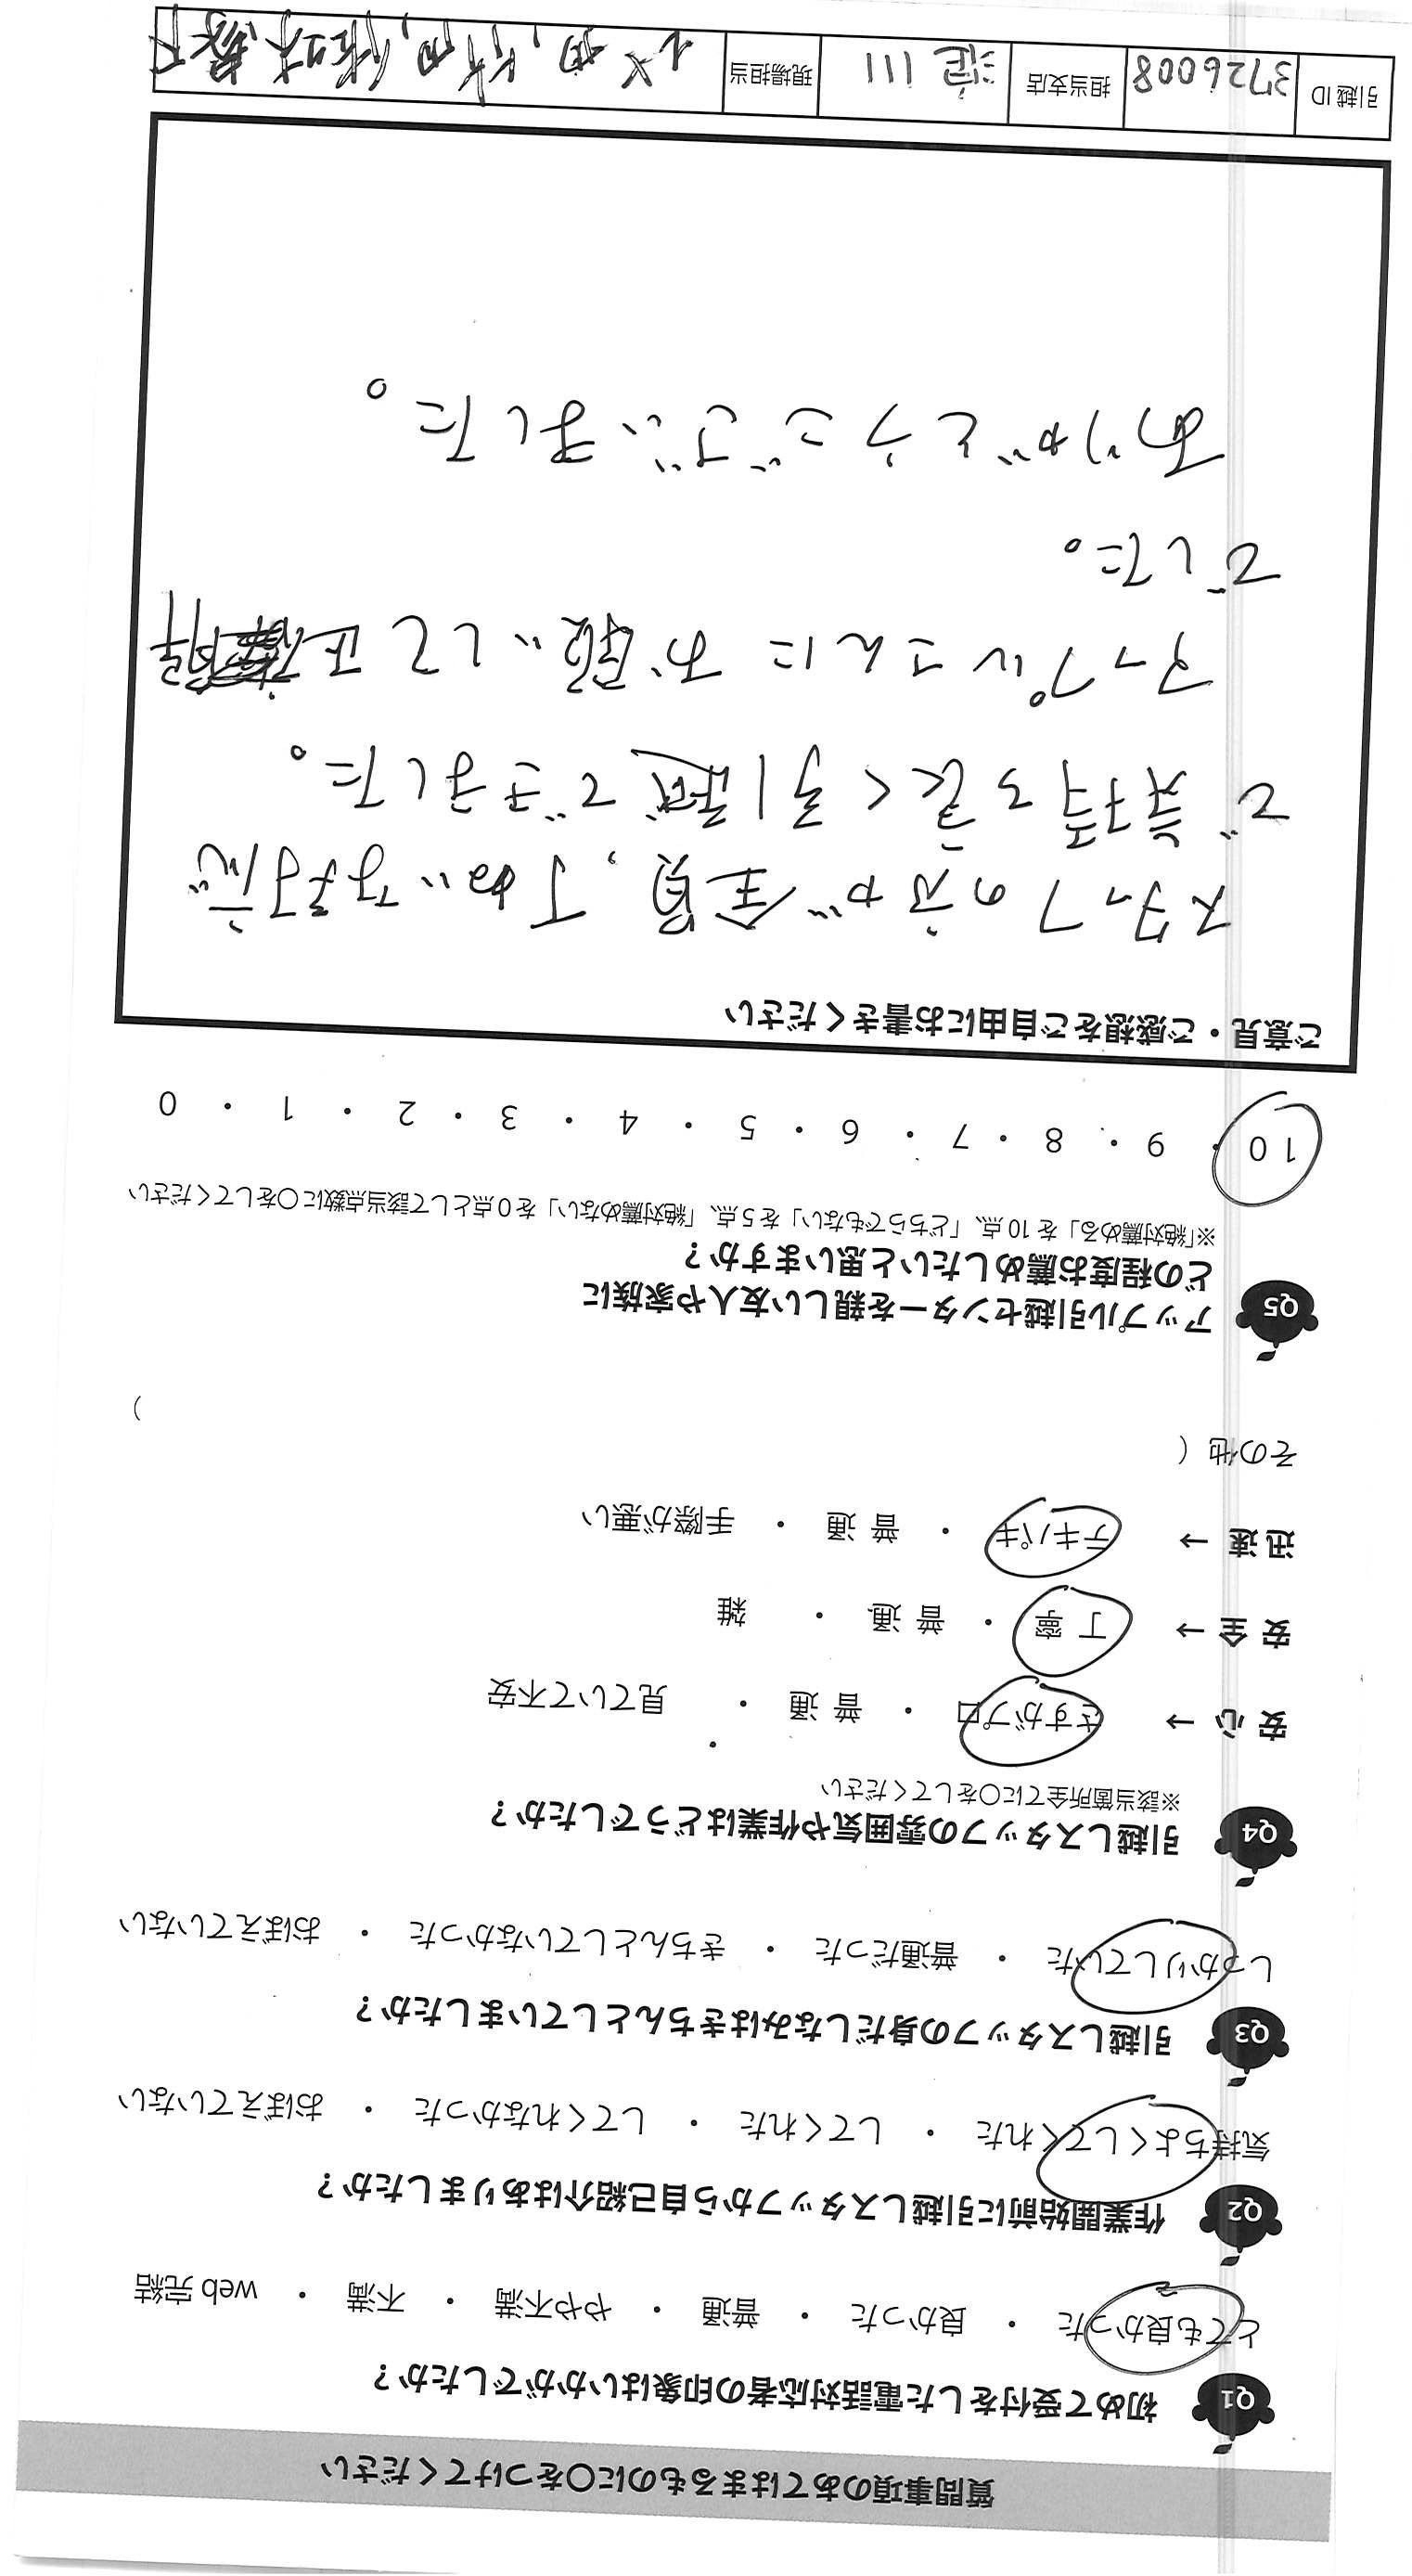 質問事項のあてはまるものに〇をつけてください
Q1 初めて受付をした電話対応者の印象はいかがでしたか？
とても良かった ・ 良かった ・ 普通 ・ やや不満 ・ 不満 ・ web 完結
Q2 作業開始前に引越しスタッフから自己紹介はありましたか？
気持ちよくしてくれた ・ してくれた ・ してくれなかった ・ おぼえていない
Q3 引越しスタッフの身だしなみはきちんとしていましたか？
しっかりしていた ・ 普通だった ・ きちんとしていなかった ・ おぼえていない
Q4 引越しスタッフの雰囲気や作業はどうでしたか？
※該当箇所全てに〇をしてください
安心 → さすがプロ ・ 普通 ・ 見ていて不安
安全 → 丁寧 ・ 普通 ・ 雑
迅速 → テキパキ ・ 普通 ・ 手際が悪い
その他（ ）
Q5 アップル引越センターを親しい友人や家族に
どの程度お薦めしたいと思いますか？
※「絶対薦める」を10点、「どちらでもない」を5点、「絶対薦めない」を0点として該当点数に〇をしてください
10 ・ 9 ・ 8 ・ 7 ・ 6 ・ 5 ・ 4 ・ 3 ・ 2 ・ 1 ・ 0
ご意見・ご感想をご自由にお書きください
スタッフの方が全員、丁ねいな対応
で気持ち良く引越できました。
アップルさんにお願いして正解
でした。
ありがとうございました。
引越ID 3726008 担当支店 淀川 現場担当